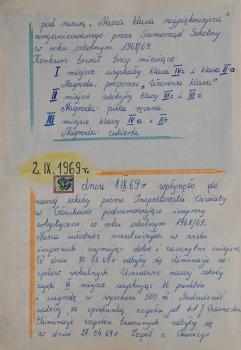 pod nazwą „Nasza klasa najpiękniejsza"
zorganizowanego przez Samorząd Szkolny
w roku szkolnym 1968/69.
Konkurs trwał trzy miesiące.
I miejsce uzyskały klasa IVc i klasa II a
Nagroda: proporzec „Wzorowa klasa"
II miejsce zdobyły klasy VIc i III c
Nagroda: piłka ręczna
III miejsce klasy IVa i II b
Nagroda: cukierki
2. IX. 1969 r.
dniu 1 IX 69 r wpłynęło do
naszej szkoły pismo Inspektoratu Oświaty
w podsumowujące imprezy
artystyczne w roku szkolnym 1968/69.
Nasza młodzież uczestniczyła w wielu
imprezach zajmując dobre i zaszczytne miejsca
W dniu 30. 03. 69 r odbyły się eliminacje ze-
społów wokalnych Uczniowie naszej szkoły
zajęli miejsce uzyskując 16 punktów
i nagrodę w wysokości 500 zł Nadmienić
należy, że opiekunką zespołu jest kol.
Eliminacje zespołów tanecznych odbyły się
w dniu 28. 04. 69 r. Zespół z